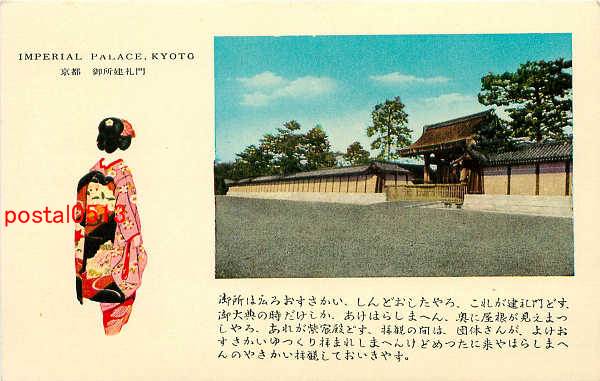 IMPERIAL PALACE, KYOTO
京都 御所建礼門
postal0513
御所は広ろおすさかい、しんどおしたやろ、これが建礼門どす、
御大典の時だけしか、あけはらしまへん、奥に屋根が見えまっ
しやろ、あれが紫宸殿どす、拝観の間は、団体さんが、よけお
すさかいゆつくり拝まれしまへんけどめつたに来やはらしまへ
んのやさかい拝観しておいきやす。